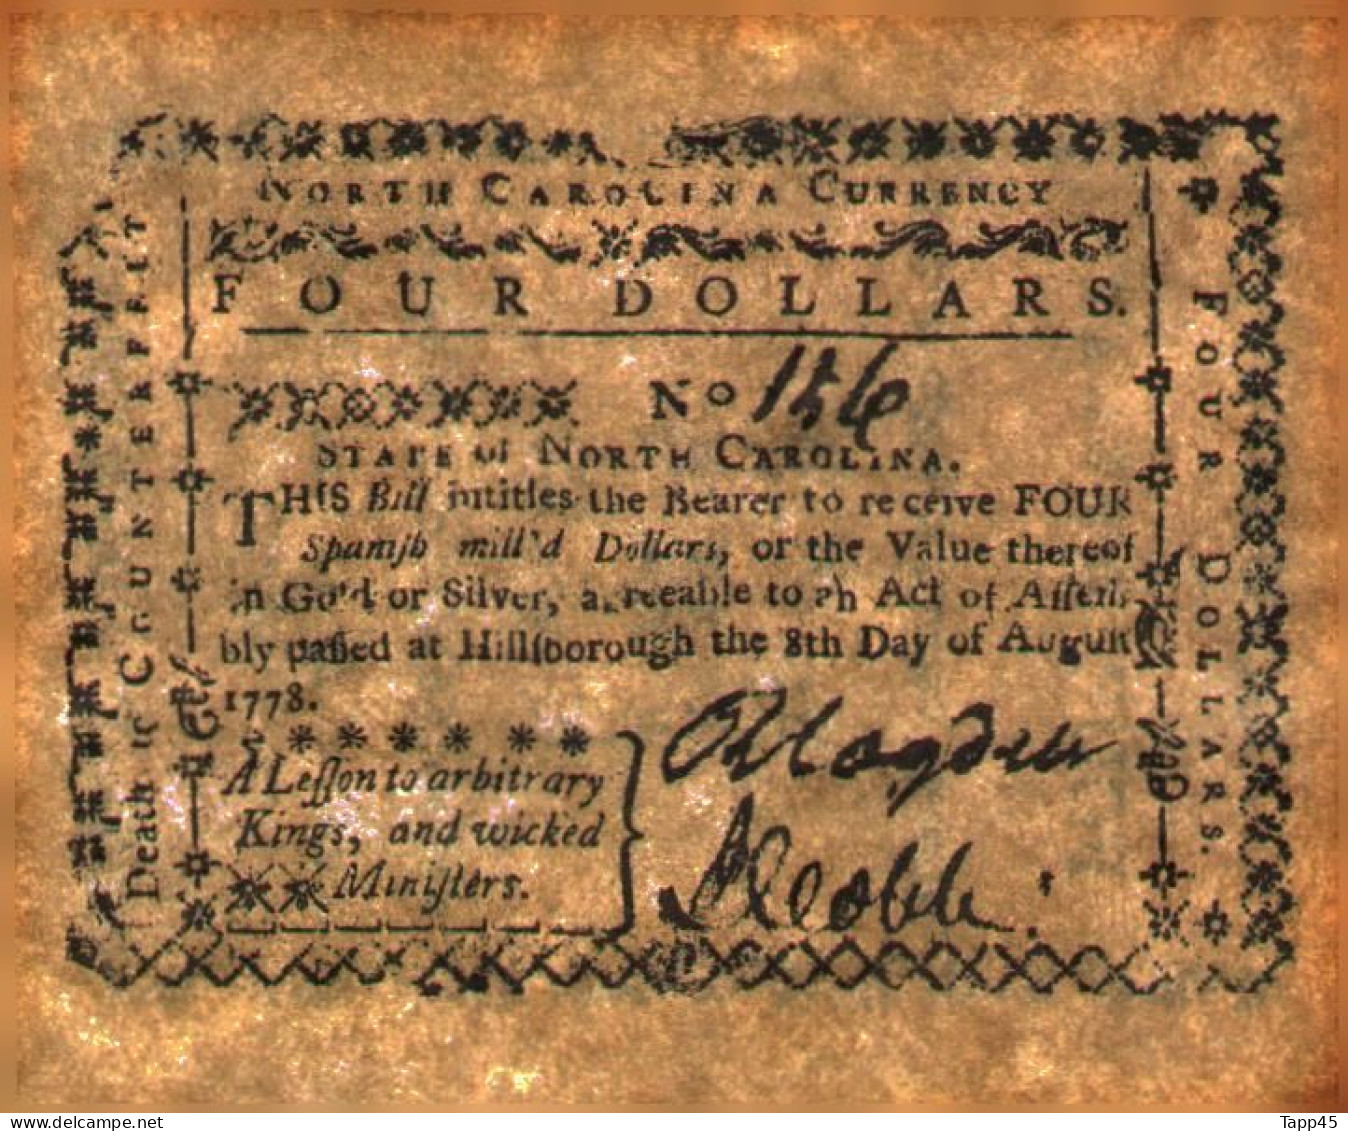 NORTH CAROLINA CURRENCY
FOUR DOLLARS.
No 156
STATE of NORTH CAROLINA.
THIS Bill intitles the Bearer to receive FOUR
Spaniſh mill'd Dollars, or the Value thereof
in Gold or Silver, agreeable to an Act of Aſſem
bly paſſed at Hillſborough the 8th Day of Auguſt
1778.
A Leſſon to arbitrary
Kings, and wicked
Miniſters.
Death to COUNTERFEIT
FOUR DOLLARS.
www.delcampe.net
Tapp45